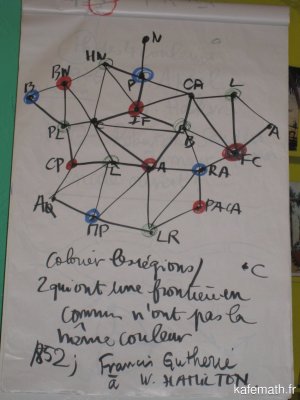 N
HN
BN
P
CA
L
B
IF
PL
C
B
A
CP
L
A
RA
FC
AQ
MP
LR
PACA
Colorier les régions /
2 qui ont une frontière en
commun n'ont pas la
même couleur
•C
1852 ; Francis Guthrie
à W. HAMILTON
kafemath.fr